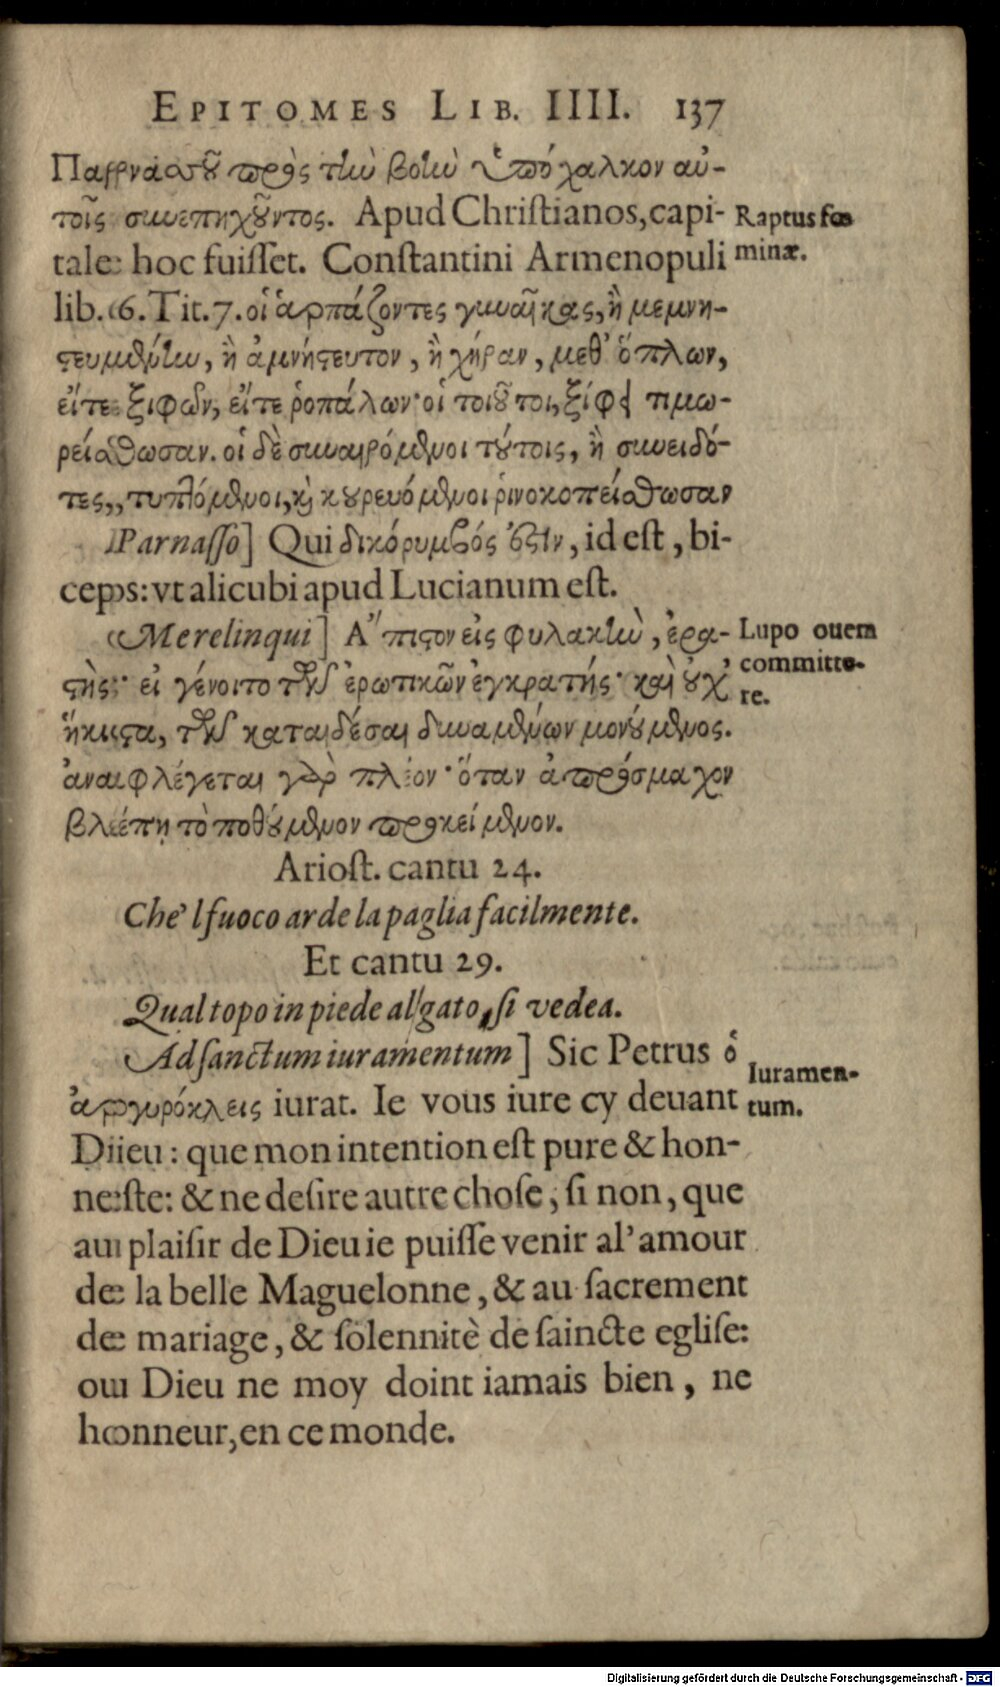 EPITOMES LIB. IIII. 137
Παρνασοῦ πρὸς τὴν βοὴν ὑπόχαλκον αὐ-
τοῖς συνεπηχοῦντος. Apud Chriſtianos, capi-
tale hoc fuiſſet. Conſtantini Armenopuli
Raptus fœ
minæ.
lib. 6. Tit. 7. οἱ ἁρπάζοντες γυναῖκας, ἢ μεμνη-
ςευμένην, ἢ ἀμνήςευτον, ἢ χήραν, μεθ' ὅπλων,
εἴτε ξιφῶν, εἴτε ῥοπάλων· οἱ τοιοῦτοι, ξίφει τιμω-
ρείσθωσαν. οἱ δὲ συναιρόμενοι τούτοις, ἢ συνειδό-
τες, τυπτόμενοι, καὶ κουρευόμενοι ῥινοκοπείσθωσαν
Parnaſſo] Qui δικόρυμβός ἐςιν, id eſt, bi-
ceps: vt alicubi apud Lucianum eſt.
Merelinqui] Ἄπιςον εἰς φυλακὴν, ἐρα-
Lupo ouem
committe-
re.
ςὴς· εἰ γένοιτο τῶν ἐρωτικῶν ἐγκρατής· καὶ οὐχ
ἥκιςα, τῶν καταιδέσαι δυναμένων μονούμενος.
ἀναφλέγεται γὰρ πλέον· ὅταν ἀπρόσμαχον
βλέπῃ τὸ ποθούμενον προκείμενον.
Arioſt. cantu 24.
Che' l fuoco arde la paglia facilmente.
Et cantu 29.
Qual topo in piede al gato, ſi vedea.
Ad ſanctum iuramentum] Sic Petrus ὁ
Iuramen-
tum.
ἀργυρόκλεις iurat. Ie vous iure cy deuant
Dieu: que mon intention eſt pure & hon-
neſte: & ne deſire autre choſe, ſi non, que
au plaiſir de Dieu ie puiſſe venir al' amour
de la belle Maguelonne, & au ſacrement
de mariage, & ſolennitè de ſaincte egliſe:
ou Dieu ne moy doint iamais bien, ne
honneur, en ce monde.
Digitalisierung gefördert durch die Deutsche Forschungsgemeinschaft - DFG